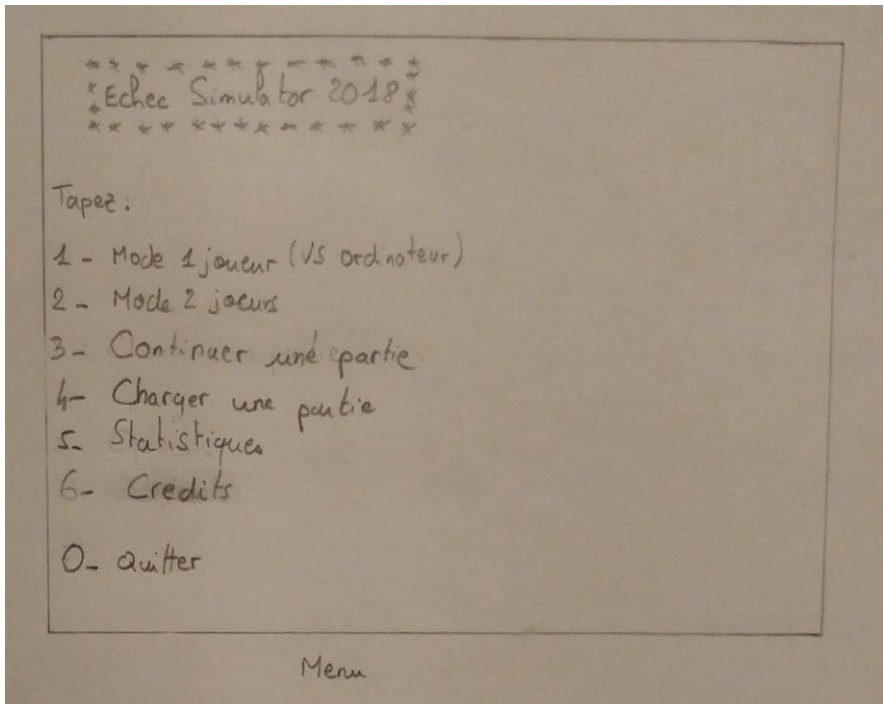 * * * * * * * * * * * * *
* Echec Simulator 2018 *
* * * * * * * * * * * * *
Tapez :
1 - Mode 1 joueur (VS ordinateur)
2 - Mode 2 joeurs
3 - Continuer une partie
4 - Charger une partie
5 - Statistiques
6 - Credits
0 - Quitter
Menu